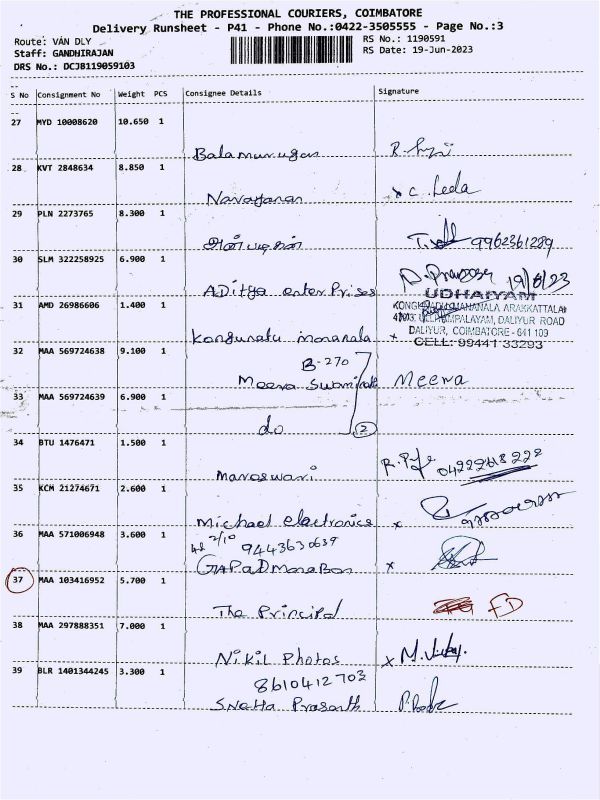 THE PROFESSIONAL COURIERS, COIMBATORE
Delivery Runsheet - P41 - Phone No.:0422-3505555 - Page No.:3
Route: VAN DLY
RS No.: 1190591
Staff: GANDHIRAJAN
RS Date: 19-Jun-2023
DRS No.: DCJB119059103
S No Consignment No Weight PCS Consignee Details Signature
27 MYD 10008620 10.650 1
Balamurugan
28 KVT 2848634 8.850 1
Narayanan x C. Leela
29 PLN 2273765 8.300 1
9962361289
30 SLM 322258925 6.900 1
19/6/23
ADitya enterPrises
UDHAIYAM
31 AMD 26986606 1.400 1
ARAKKATTALAI
DALIYUR ROAD
DALIYUR, COIMBATORE - 641 109
Kongunatu x
CELL: 99441 33293
32 MAA 569724638 9.100 1
B-270
Meera Meera
33 MAA 569724639 6.900 1
do 2
34 BTU 1476471 1.500 1
Manoswari
35 KCM 21274671 2.600 1
Michael electronics x
36 MAA 571006948 3.600 1
2/10 9443630639
x
37 MAA 103416952 5.700 1
The Principal FD
38 MAA 297888351 7.000 1
Nikil Photos x
39 BLR 1401344245 3.300 1
8610412703
Sneha Prasanth